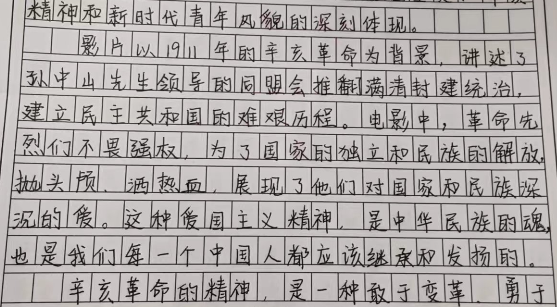 精神和新时代青年风貌的深刻体现。
影片以1911年的辛亥革命为背景，讲述了
孙中山先生领导的同盟会推翻满清封建统治，
建立民主共和国的难艰历程。电影中，革命先
烈们不畏强权，为了国家的独立和民族的解放，
抛头颅、洒热血，展现了他们对国家和民族深
沉的爱。这种爱国主义精神，是中华民族的魂，
也是我们每一个中国人都应该继承和发扬的。
辛亥革命的精神，是一种敢于变革 勇于